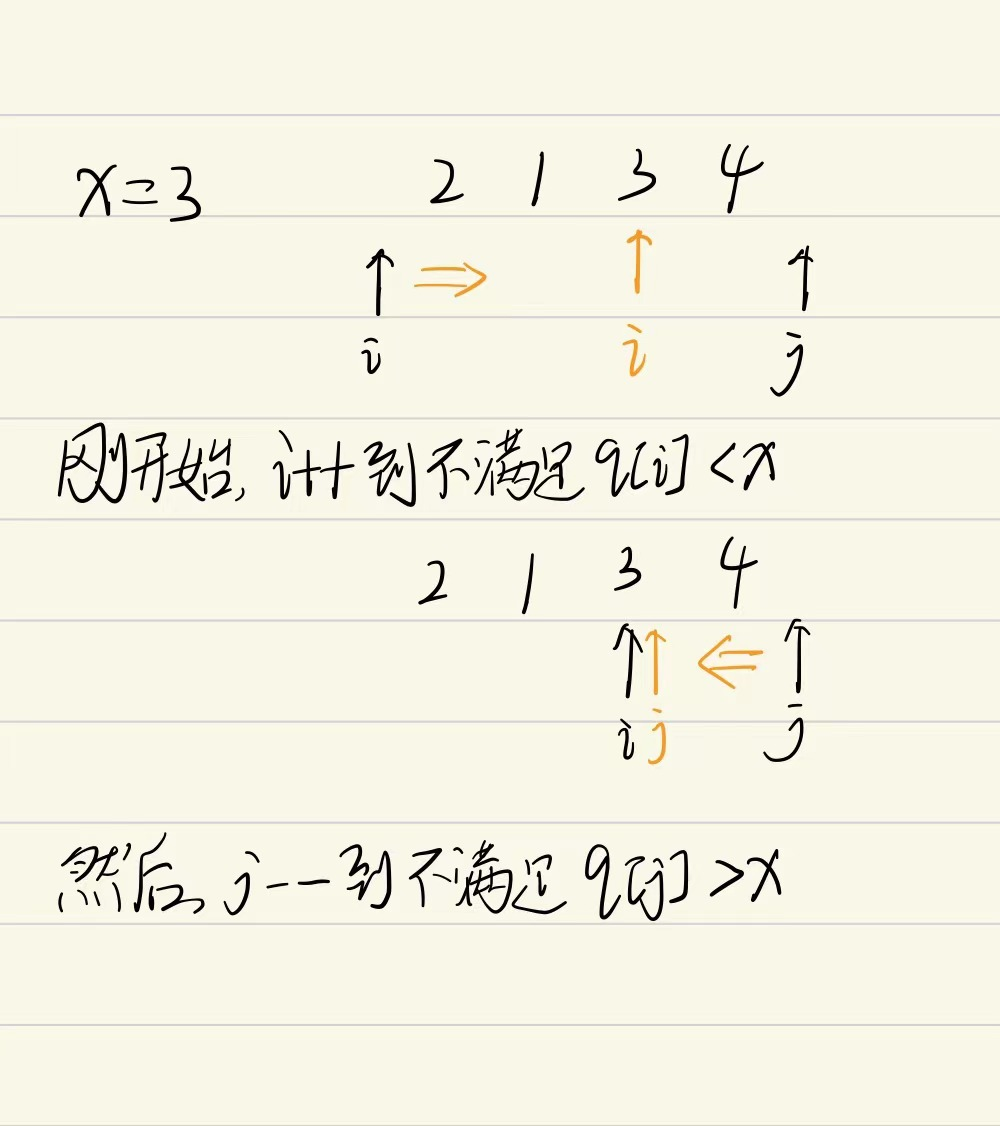 x=3 2 1 3 4
i ⇒ i j
刚开始, i++到不满足 q[i]<x
2 1 3 4
i j ⇐ j
然后, j--到不满足 q[j]>x